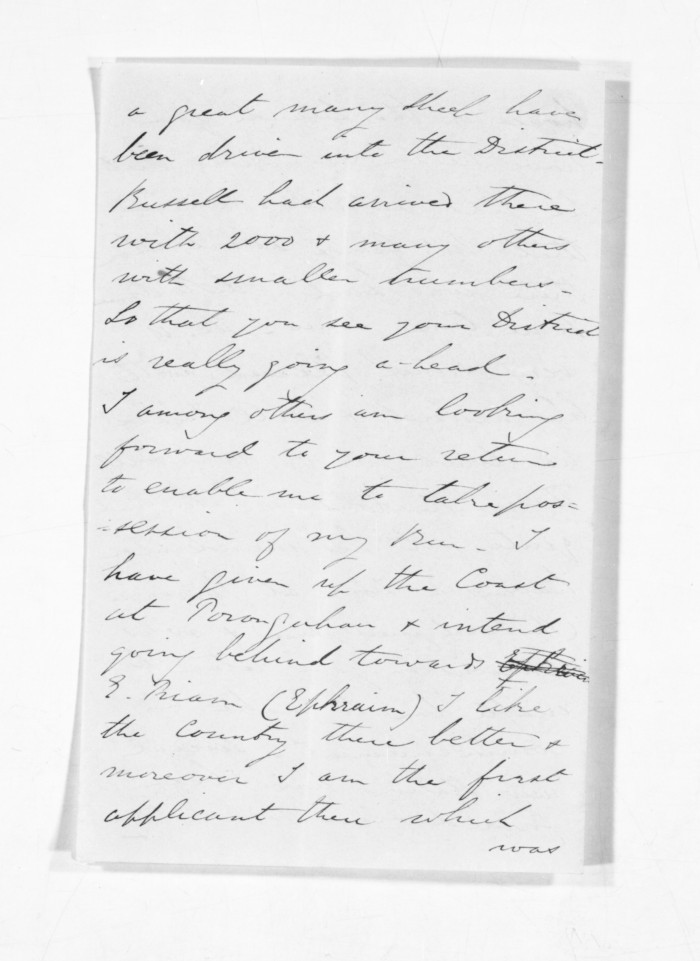 a great many Sheep have
been driven into the District -
Russell had arrived there
with 2000 & many others
with smaller numbers -
So that you see your District
is really going a-head -
I among others am looking
forward to your return
to enable me to take pos=
=session of my Run - I
have given up the Coast
at Porongahau & intend
going behind towards
E. Niam (Ephraim) I like
the Country there better &
moreover I am the first
applicant there which
was